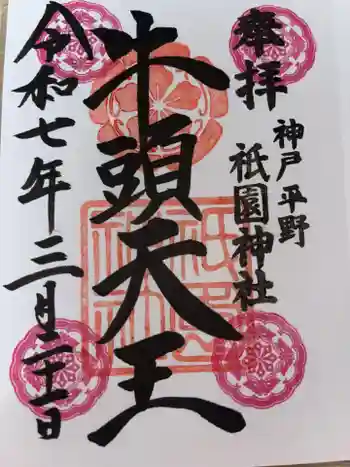 奉拝
神戸平野
祇園神社
牛頭天王
令和七年三月二十一日
祇園
神社